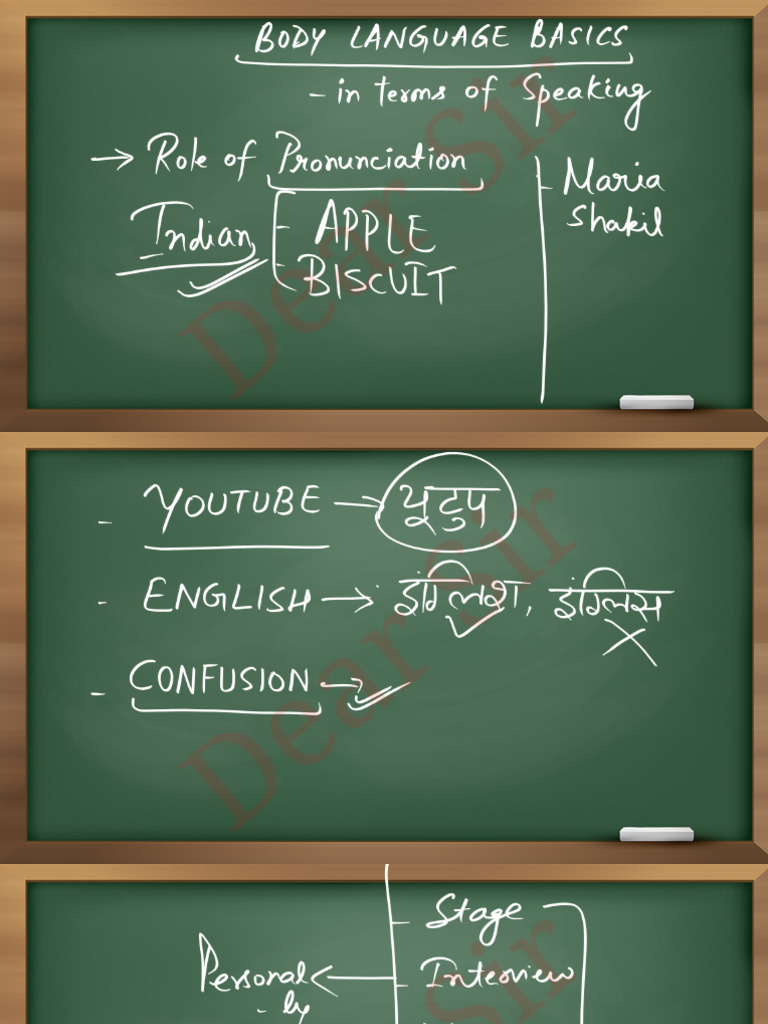 BODY LANGUAGE BASICS
- in terms of Speaking
→ Role of Pronunciation
Indian
- APPLE
- BISCUIT
- Maria
Shakil
Dear Sir
- YOUTUBE → यूटुप
- ENGLISH → इंग्लिश, इंग्लिस
- CONFUSION →
Dear Sir
- Stage
Personal ← - Interview
- ly
Sir